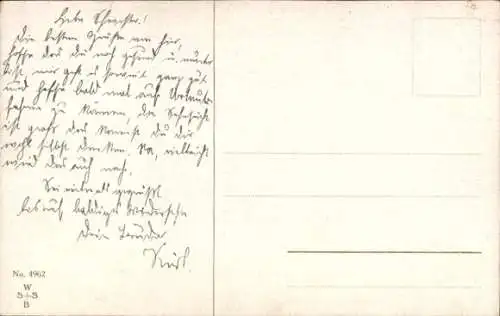 Liebe Schwester!
Die besten Grüße von hier,
hoffe das du noch gesund u. munter
bist, mir geht es soweit ganz gut
und hoffe bald mal auf Urlaub
fahren zu können, die Sehnsucht
ist groß das kannst du dir
wohl selbst denken. Na, vielleicht
wird das auch noch.
Sei vielmals gegrüßt
bis auf baldiges Wiedersehn
Dein Bruder
No. 4962
W
S-i-S
B